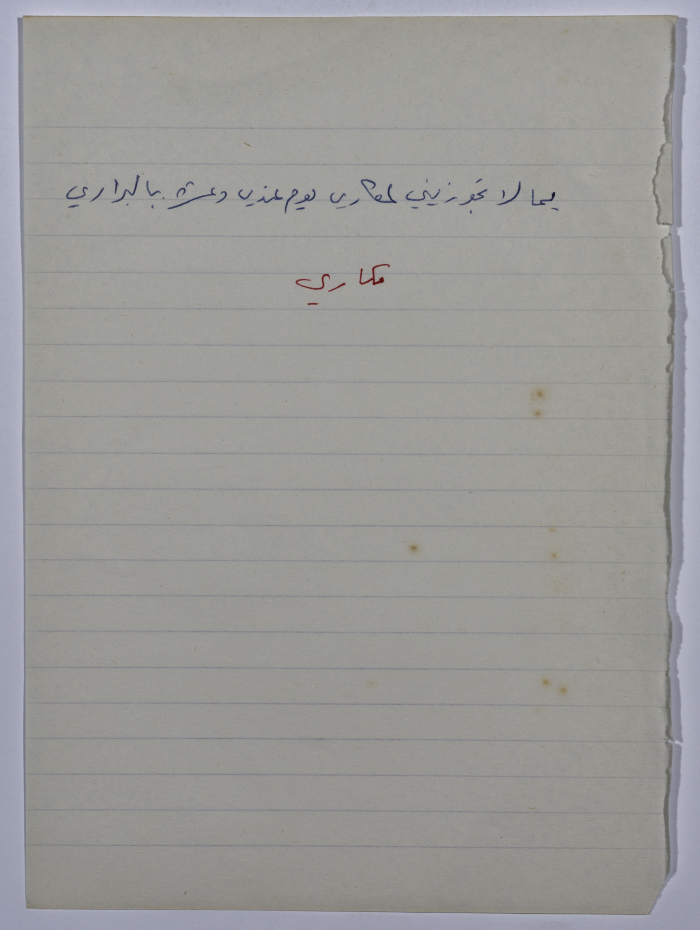 يما لا تجوزيني لمكاري يوم عندي وعشرة بالبراري
مكاري